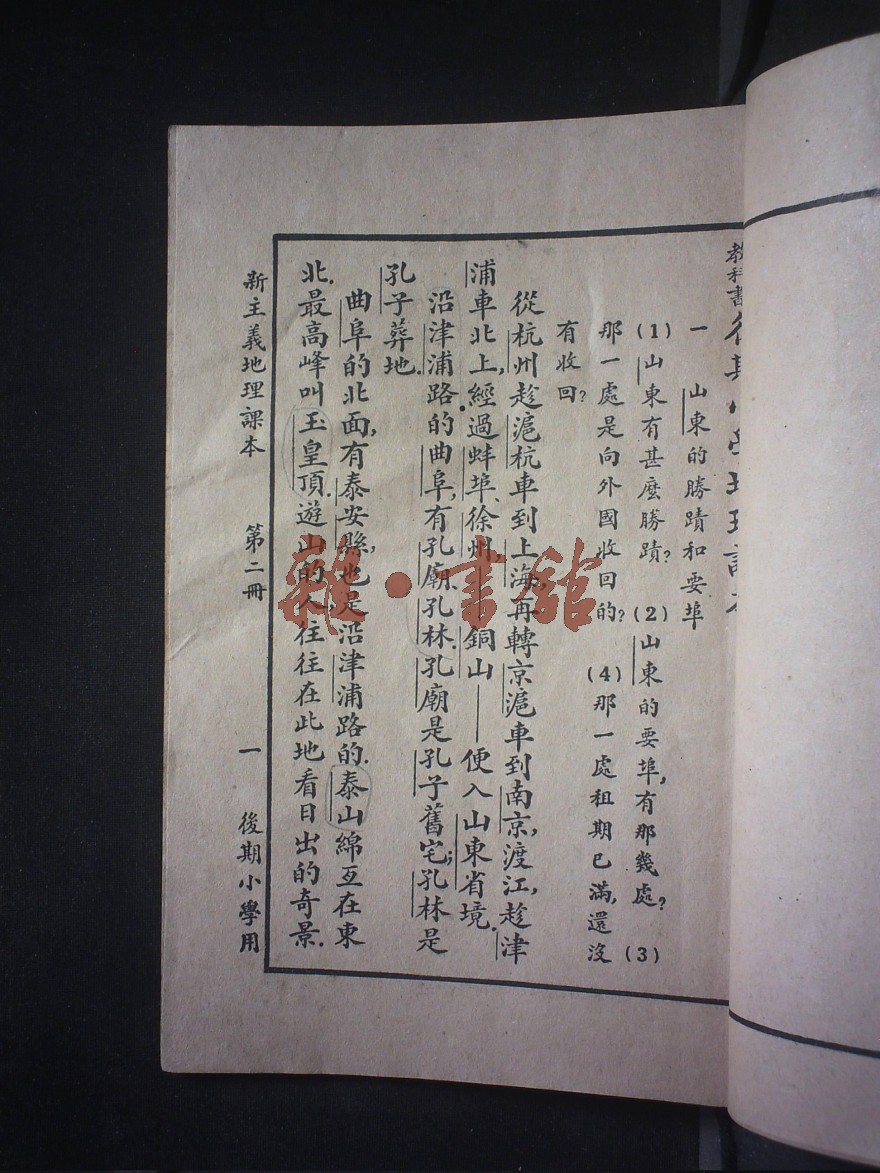 教科書後期小學地理課本
一 山東的勝蹟和要埠
(1)山東有甚麼勝蹟?(2)山東的要埠,有那幾處?(3)
那一處是向外國收回的?(4)那一處租期已滿,還沒
有收回?
從杭州趁滬杭車到上海,再轉京滬車到南京,渡江,趁津
浦車北上,經過蚌埠、徐州——銅山——便入山東省境.
沿津浦路的曲阜,有孔廟、孔林.孔廟是孔子舊宅;孔林是
孔子葬地.
曲阜的北面,有泰安縣,也是沿津浦路的.泰山綿亙在東
北.最高峰叫玉皇頂.遊山的人,往往在此地看日出的奇景.
新主義地理課本 第二冊 一 後期小學用
雜·書館